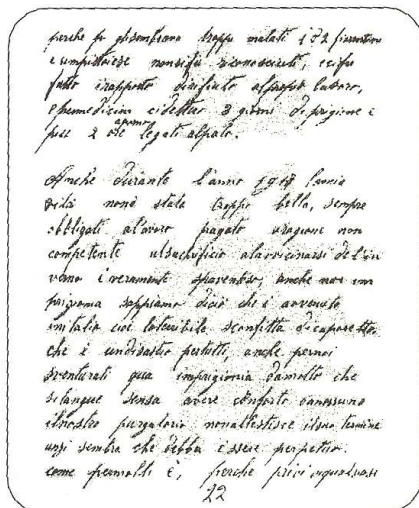 perche gli sembrava troppo malati 1 o 2 fiorentino
e un pistoiese non si fù riconosciuti, ci fù
fatto il rapporto di rifiuto al proprio lavoro,
e per medicina ci dettero 3 giorni di prigione e
più 2 ore a porno legati al palo.
Anche durante l'anno 1917 la mia
vita non è stata troppo bella, sempre
obbligati al lavoro pagato a ragione non
competente al sacrificio al avvicinarsi del in
verno è veramente spaventoso, anche noi in
prigionia sappiamo di ciò che è avvenuto
in italia cioè la terribile sconfitta di caporetto
che è un disastro per tutti, anche per noi
sventurati qua in prigionia da molto che
si langue sensa avere conforto da nessuno
il nostro purgatorio non allestisce il suo termine
anzi sembra che debba essere perpetuo.
come per molti è, perche privi
22